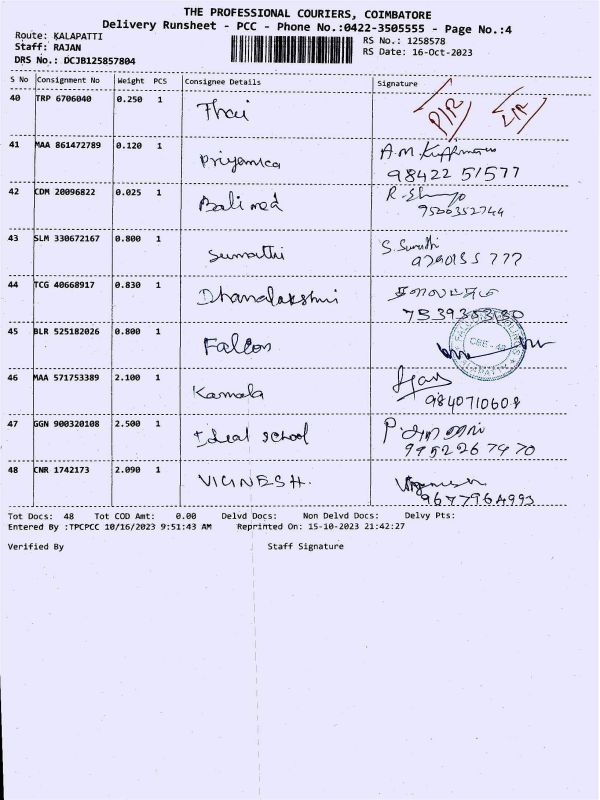 THE PROFESSIONAL COURIERS, COIMBATORE
Delivery Runsheet - PCC - Phone No.:0422-3505555 - Page No.:4
Route: KALAPATTI
RS No.: 1258578
Staff: RAJAN
RS Date: 16-Oct-2023
DRS No.: DCJB125857804
S No Consignment No Weight PCS Consignee Details Signature
40 TRP 6706040 0.250 1 Thai
41 MAA 861472789 0.120 1 Priyamica A.M.
98422 51577
42 CDM 20096822 0.025 1 Balimed R.
9500352744
43 SLM 330672167 0.800 1 Sumathi S. Sumathi
9790155 777
44 TCG 40668917 0.830 1 Dhanalakshmi
7539305330
45 BLR 525182026 0.800 1 Falcon
46 MAA 571753389 2.100 1 Kamala
9840710608
47 GGN 900320108 2.500 1 Ideal School
9952267970
48 CNR 1742173 2.090 1 VIGNESH.
9677964993
Tot Docs: 48 Tot COD Amt: 0.00 Delvd Docs: Non Delvd Docs: Delvy Pts:
Entered By :TPCPCC 10/16/2023 9:51:43 AM Reprinted On: 15-10-2023 21:42:27
Verified By Staff Signature